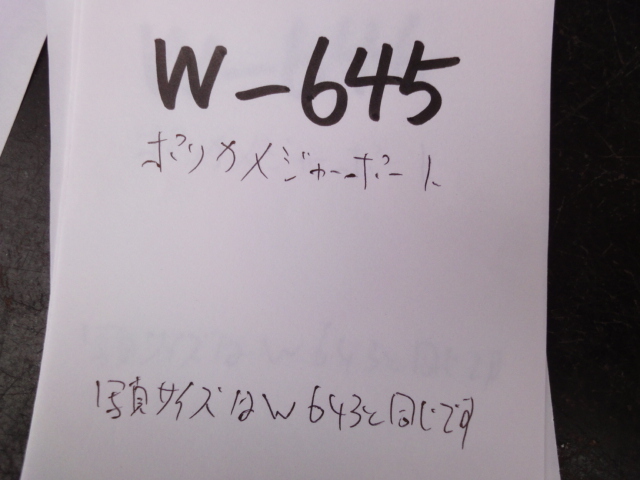 W-645
ポリカメジャーボート
写真サイズはW643と同じです